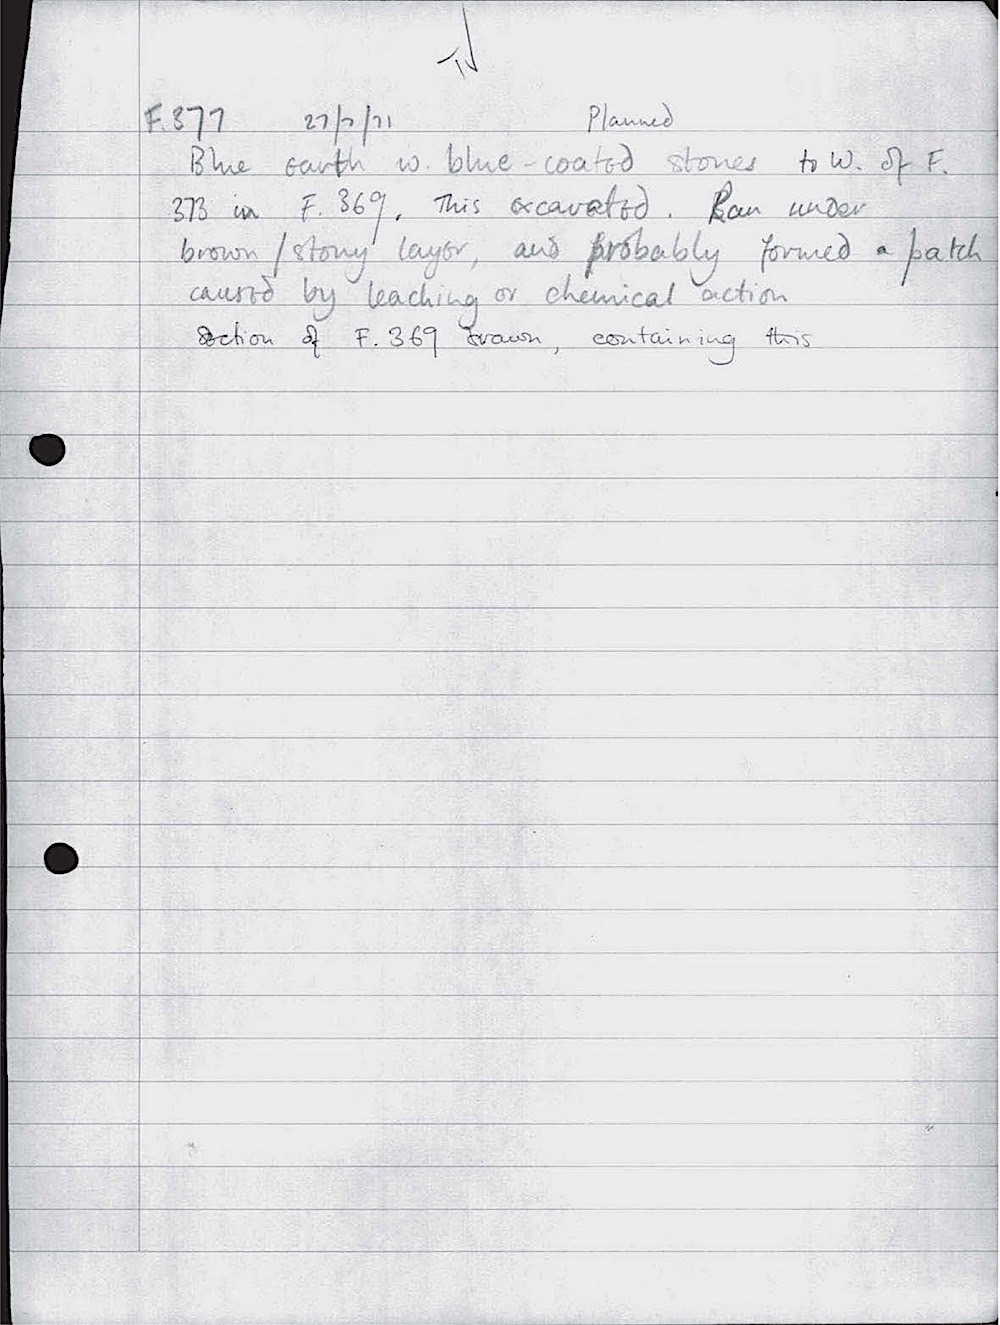 F.377 27/7/71 Planned
Blue earth w. blue-coated stones to W. of F.
373 in F. 369. This excavated. Ran under
brown/stony layer, and probably formed a patch
caused by leaching or chemical action
Section of F. 369 drawn, containing this